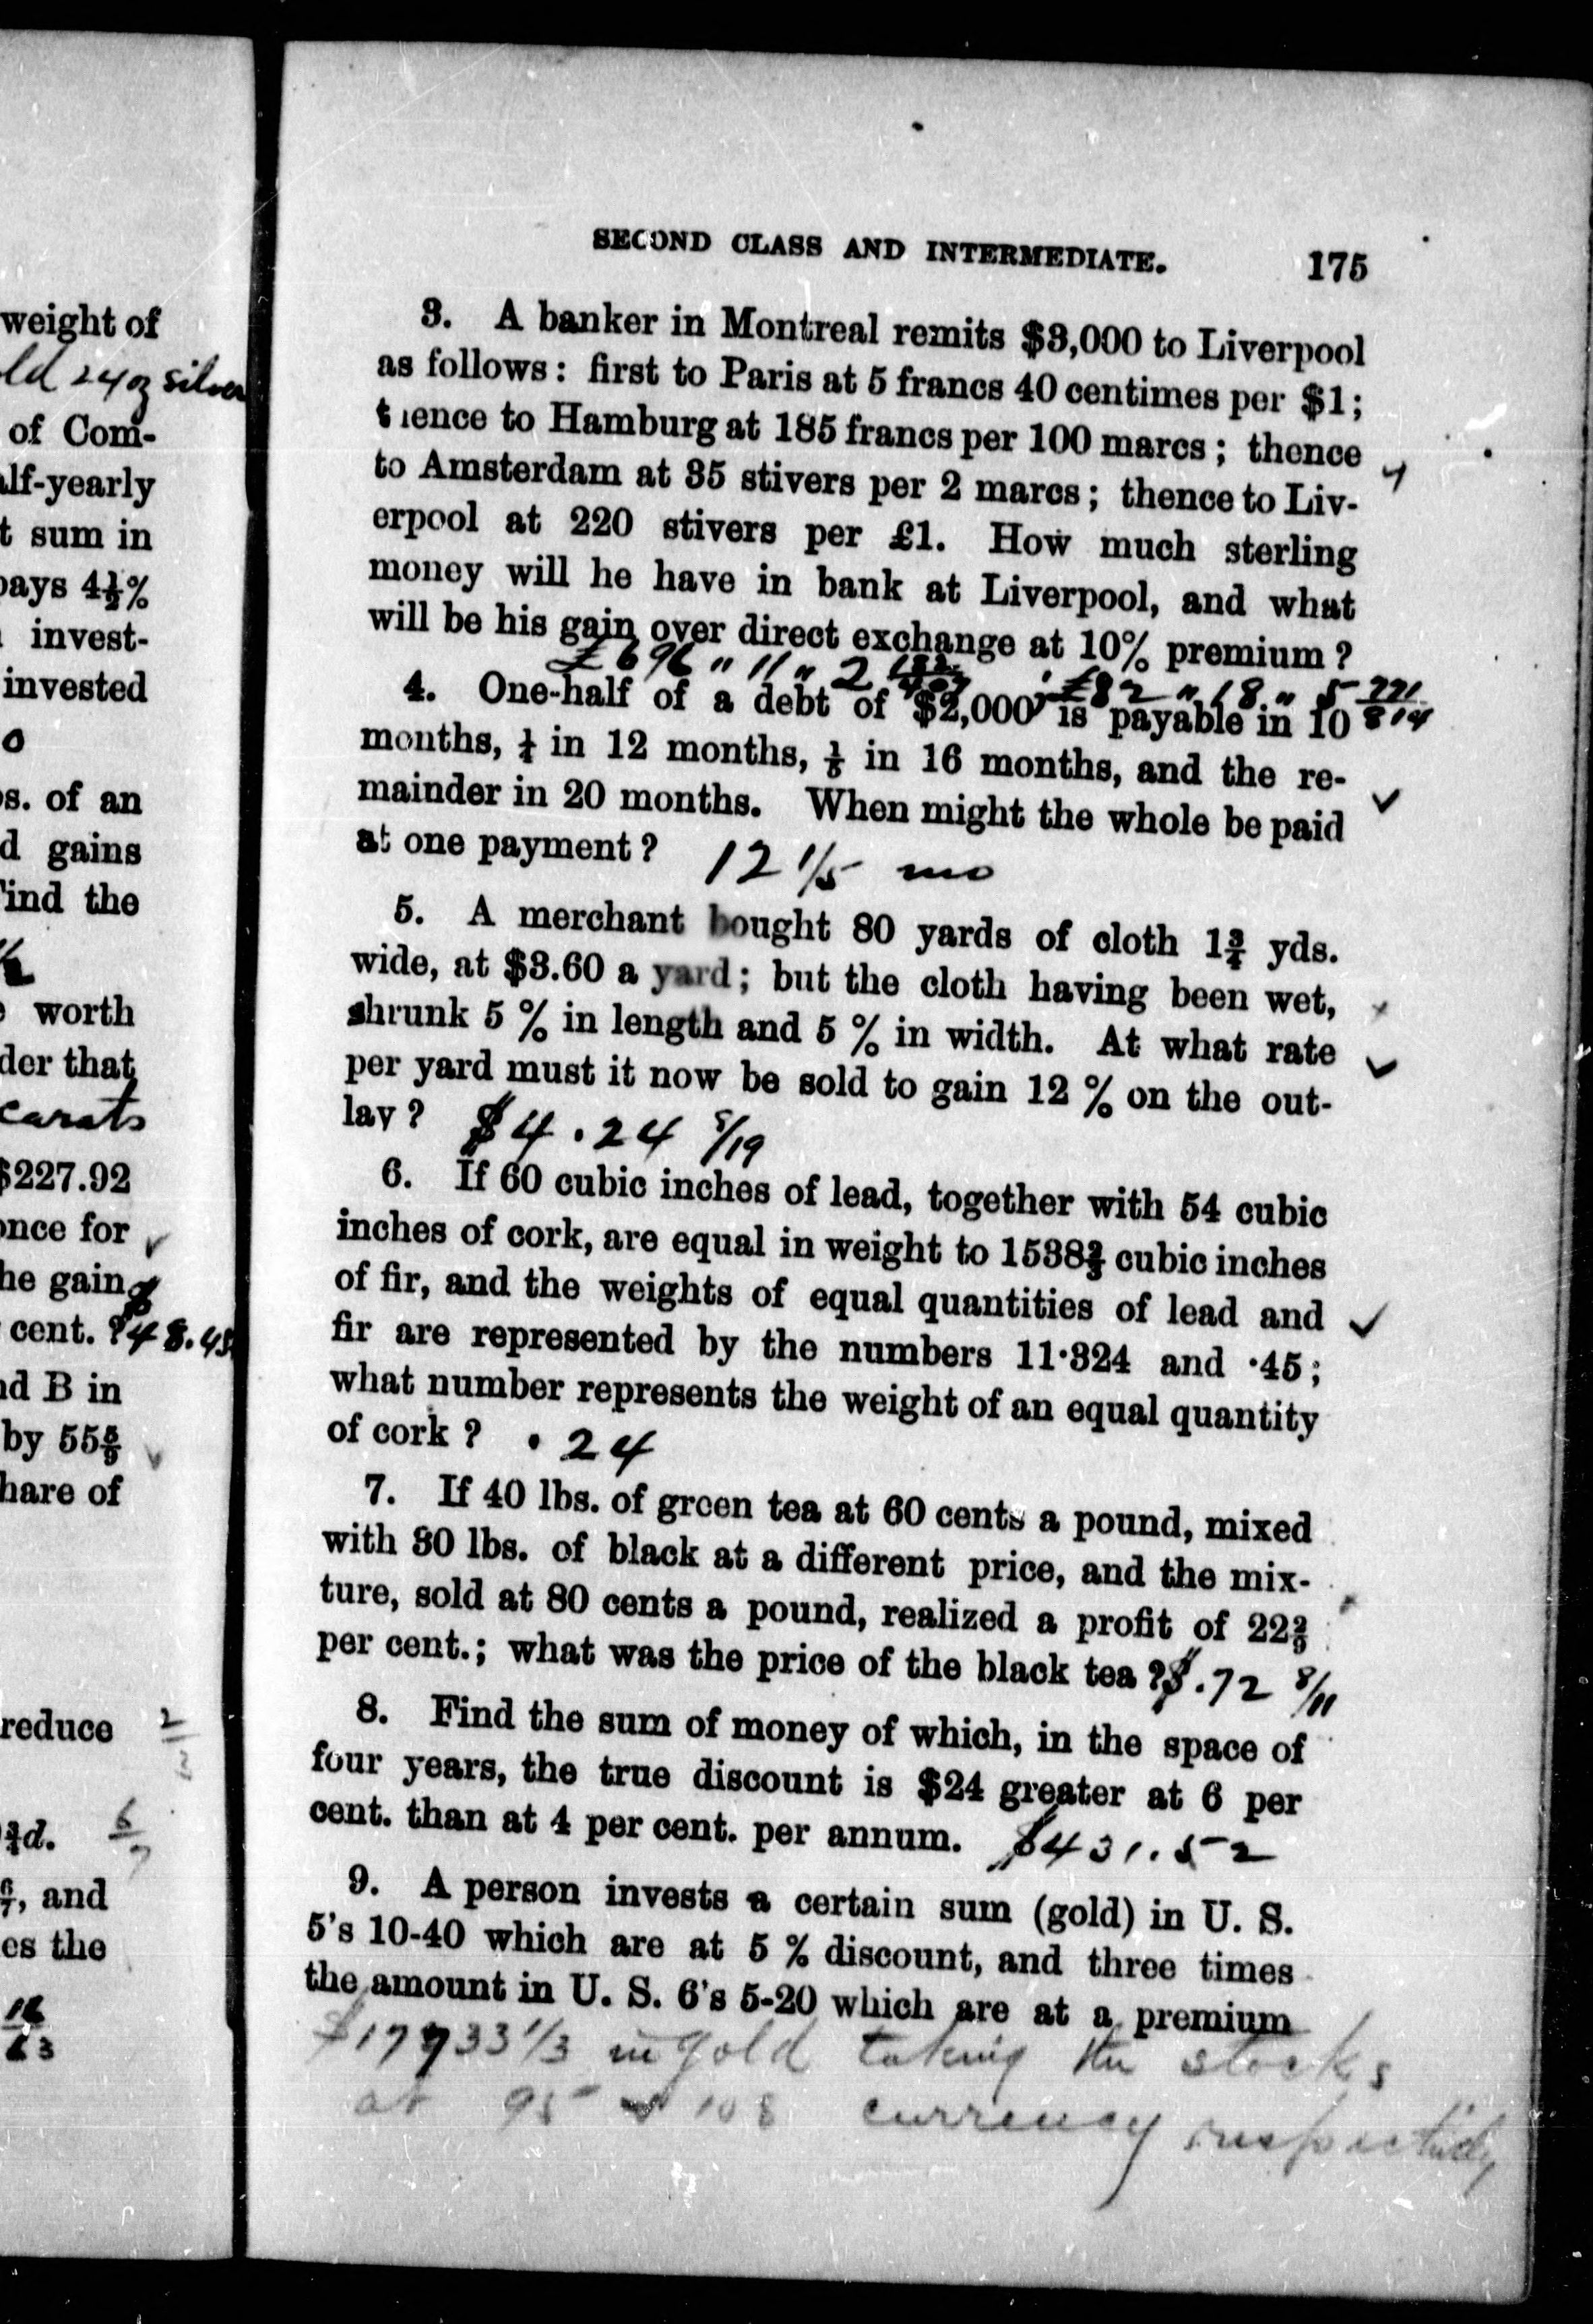 weight of
ld 24 oz silver
of Com-
alf-yearly
t sum in
pays 4½%
invest-
invested
0
s. of an
d gains
Find the
½
worth
der that
carats
$227.92
once for
he gain
cent. ? 48.48
nd B in
by 55 5/9
hare of
reduce 2/3
¾d. 6/7
6/7, and
es the
SECOND CLASS AND INTERMEDIATE. 175
3. A banker in Montreal remits $3,000 to Liverpool
as follows: first to Paris at 5 francs 40 centimes per $1;
thence to Hamburg at 185 francs per 100 marcs; thence
to Amsterdam at 35 stivers per 2 marcs; thence to Liv-
erpool at 220 stivers per £1. How much sterling
money will he have in bank at Liverpool, and what
will be his gain over direct exchange at 10% premium?
£696 " 11 " 2 182/407; £82 " 18 " 5 221/814
4. One-half of a debt of $2,000 is payable in 10
months, ¼ in 12 months, ⅛ in 16 months, and the re-
mainder in 20 months. When might the whole be paid
at one payment? 12 1/5 mo
5. A merchant bought 80 yards of cloth 1¾ yds.
wide, at $3.60 a yard; but the cloth having been wet,
shrunk 5 % in length and 5 % in width. At what rate
per yard must it now be sold to gain 12 % on the out-
lay? $4.24 8/19
6. If 60 cubic inches of lead, together with 54 cubic
inches of cork, are equal in weight to 1538⅔ cubic inches
of fir, and the weights of equal quantities of lead and
fir are represented by the numbers 11·324 and ·45;
what number represents the weight of an equal quantity
of cork? .24
7. If 40 lbs. of green tea at 60 cents a pound, mixed
with 30 lbs. of black at a different price, and the mix-
ture, sold at 80 cents a pound, realized a profit of 22 2/9
per cent.; what was the price of the black tea? $.72 8/11
8. Find the sum of money of which, in the space of
four years, the true discount is $24 greater at 6 per
cent. than at 4 per cent. per annum. $431.52
9. A person invests a certain sum (gold) in U. S.
5's 10-40 which are at 5 % discount, and three times
the amount in U. S. 6's 5-20 which are at a premium
$17733 1/3 in gold taking the stocks
at 95 & 108 currency respectively